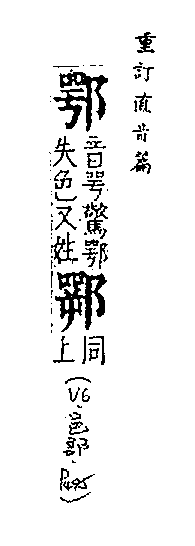 重訂直音篇
鄂
音咢驚鄂
失色又姓
同
上
(V6邑部、P495)